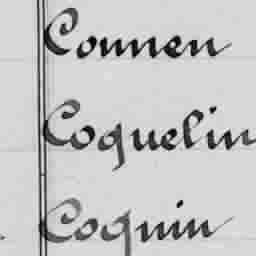 Connen
Coquelin
Coquin